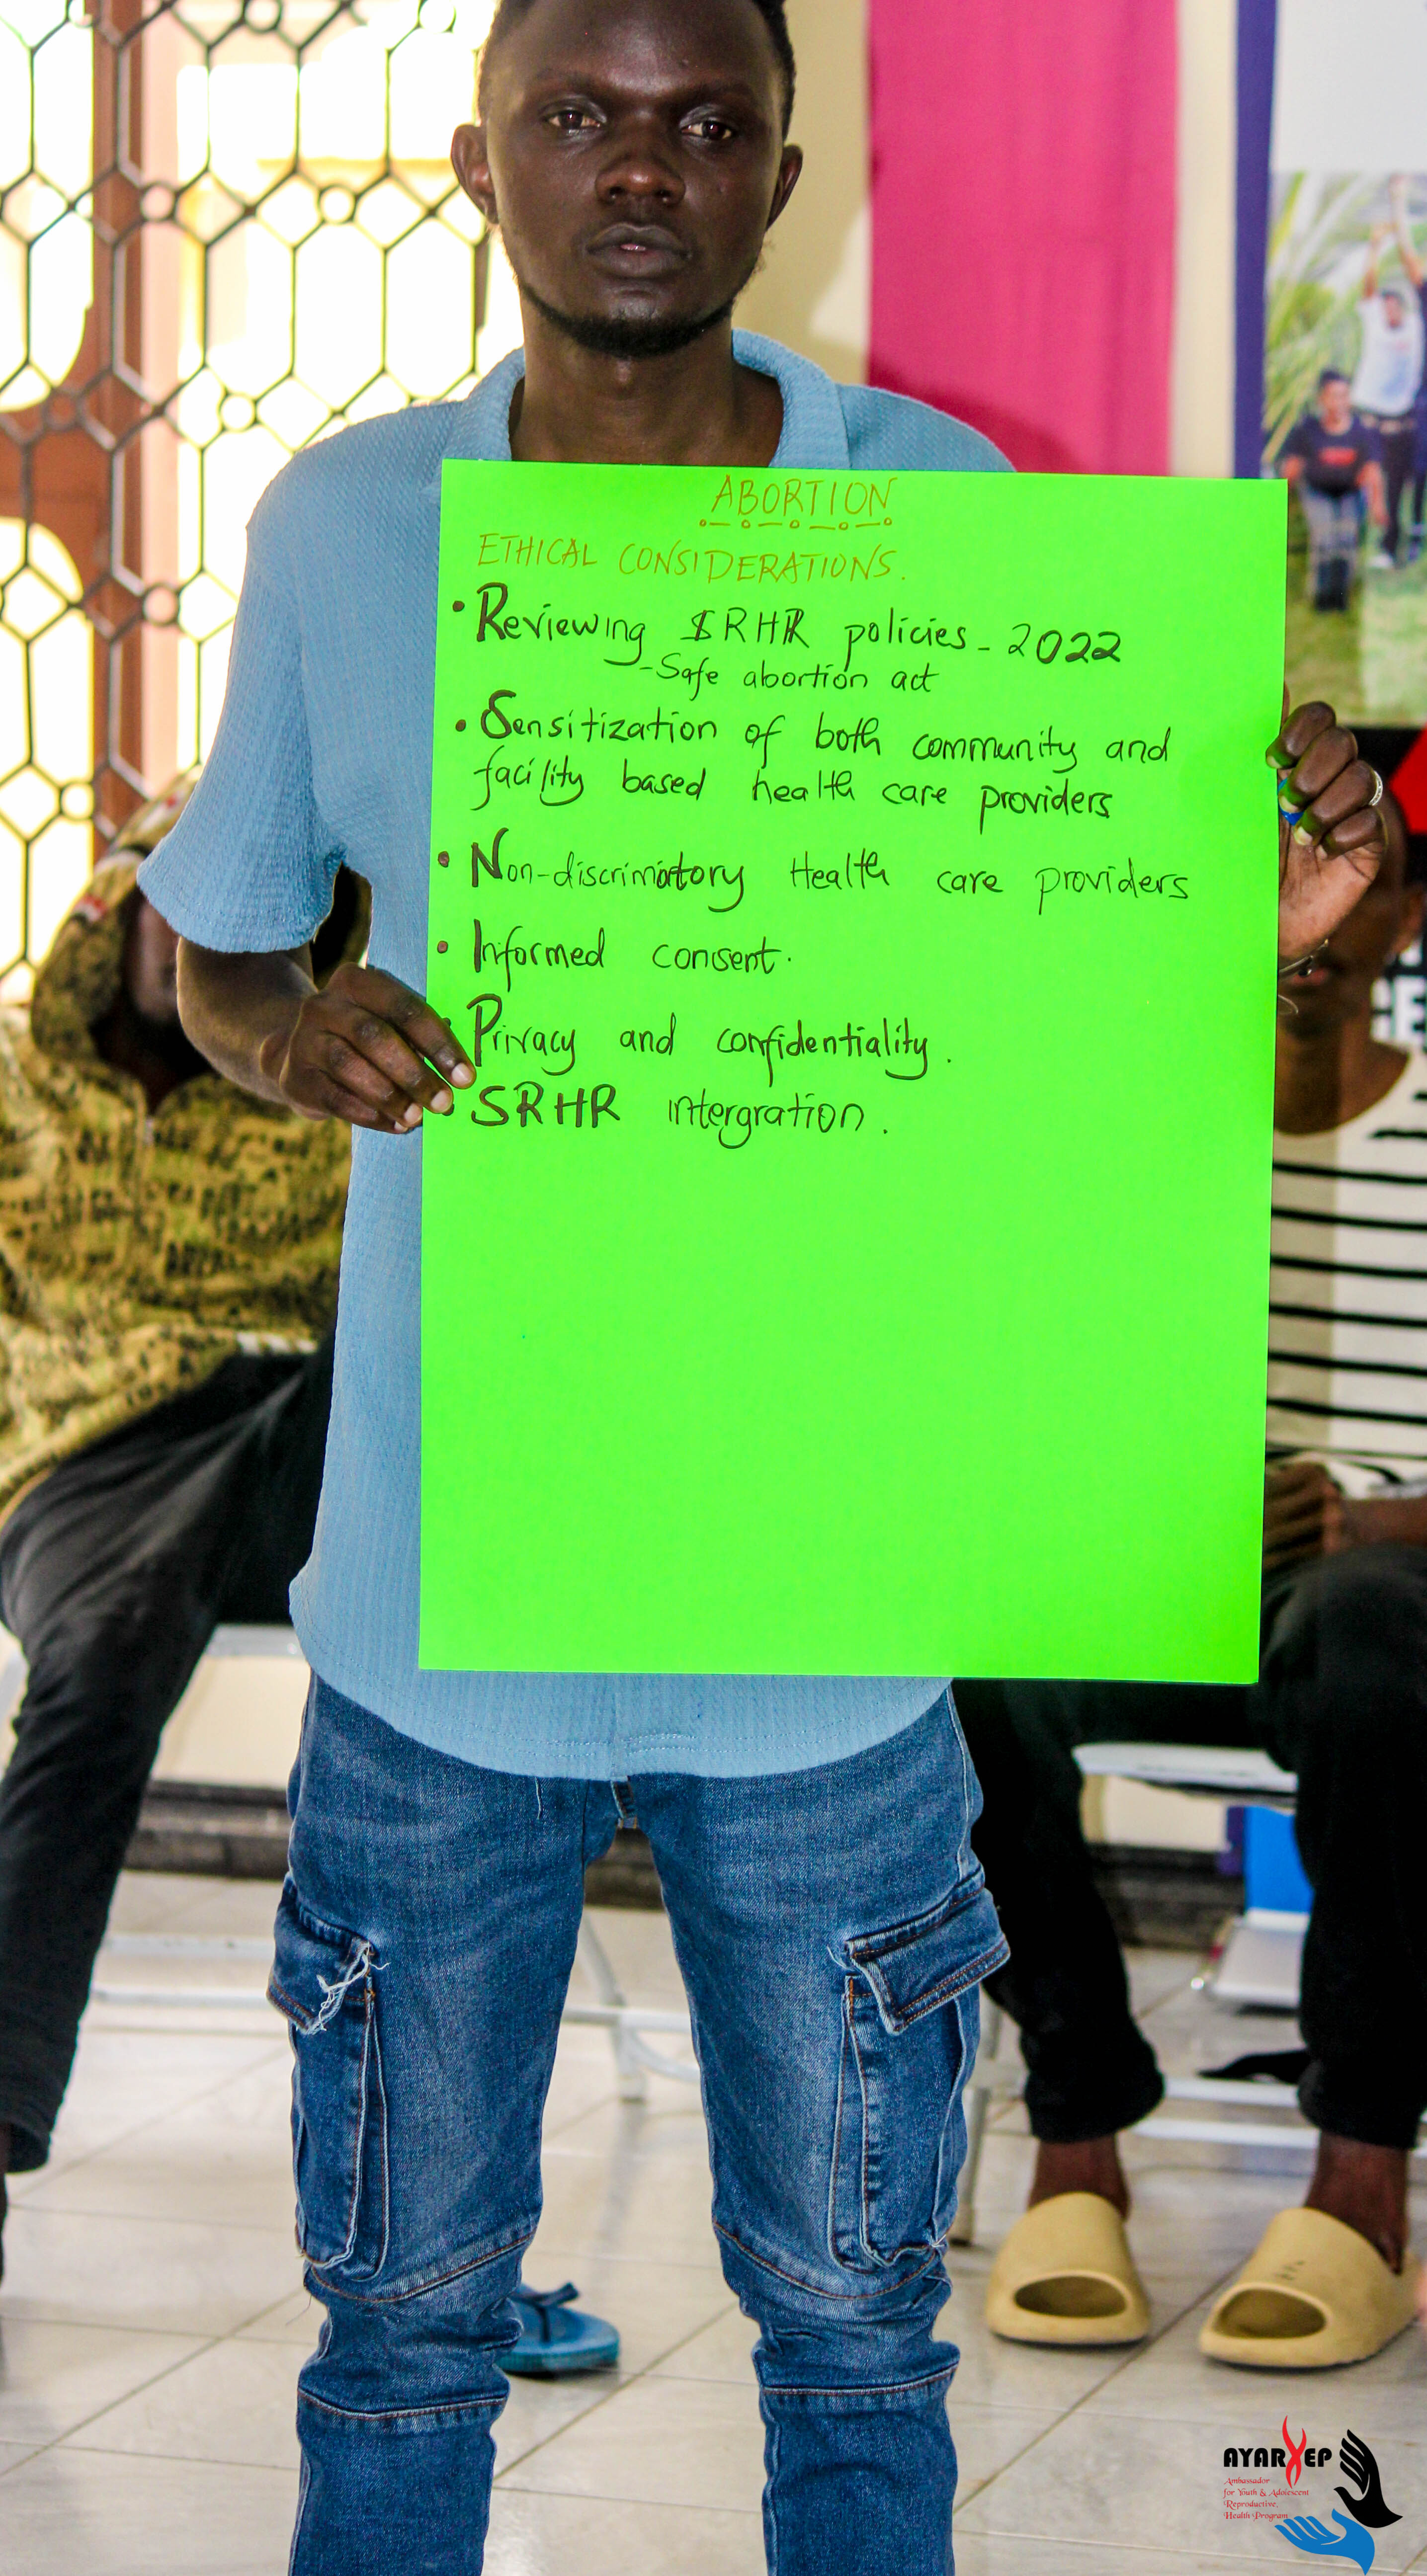 ABORTION
ETHICAL CONSIDERATIONS.
• Reviewing SRHR policies - 2022
- Safe abortion act
• Sensitization of both community and
facility based health care providers
• Non-discrimatory Health care providers
• Informed consent.
• Privacy and confidentiality.
• SRHR intergration.
AYARHEP
Ambassador
for Youth & Adolescent
Reproductive,
Health Program